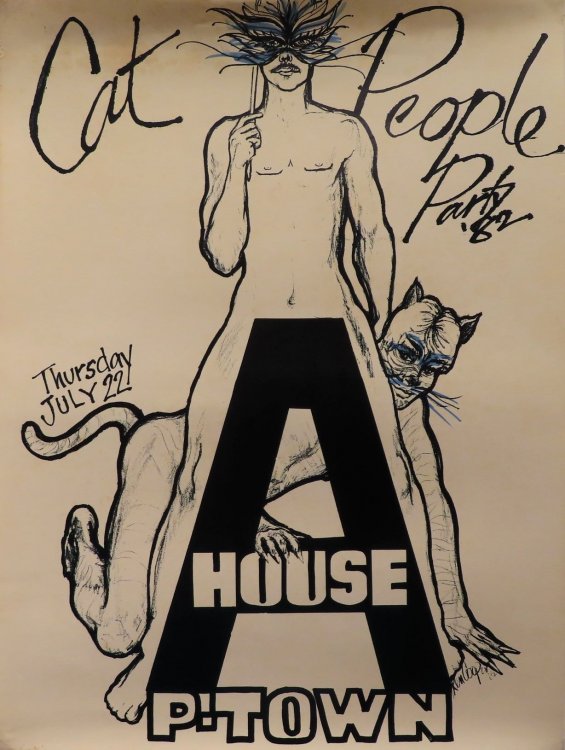 Cat People
Party
'82
Thursday
JULY 22!
A
HOUSE
P-TOWN